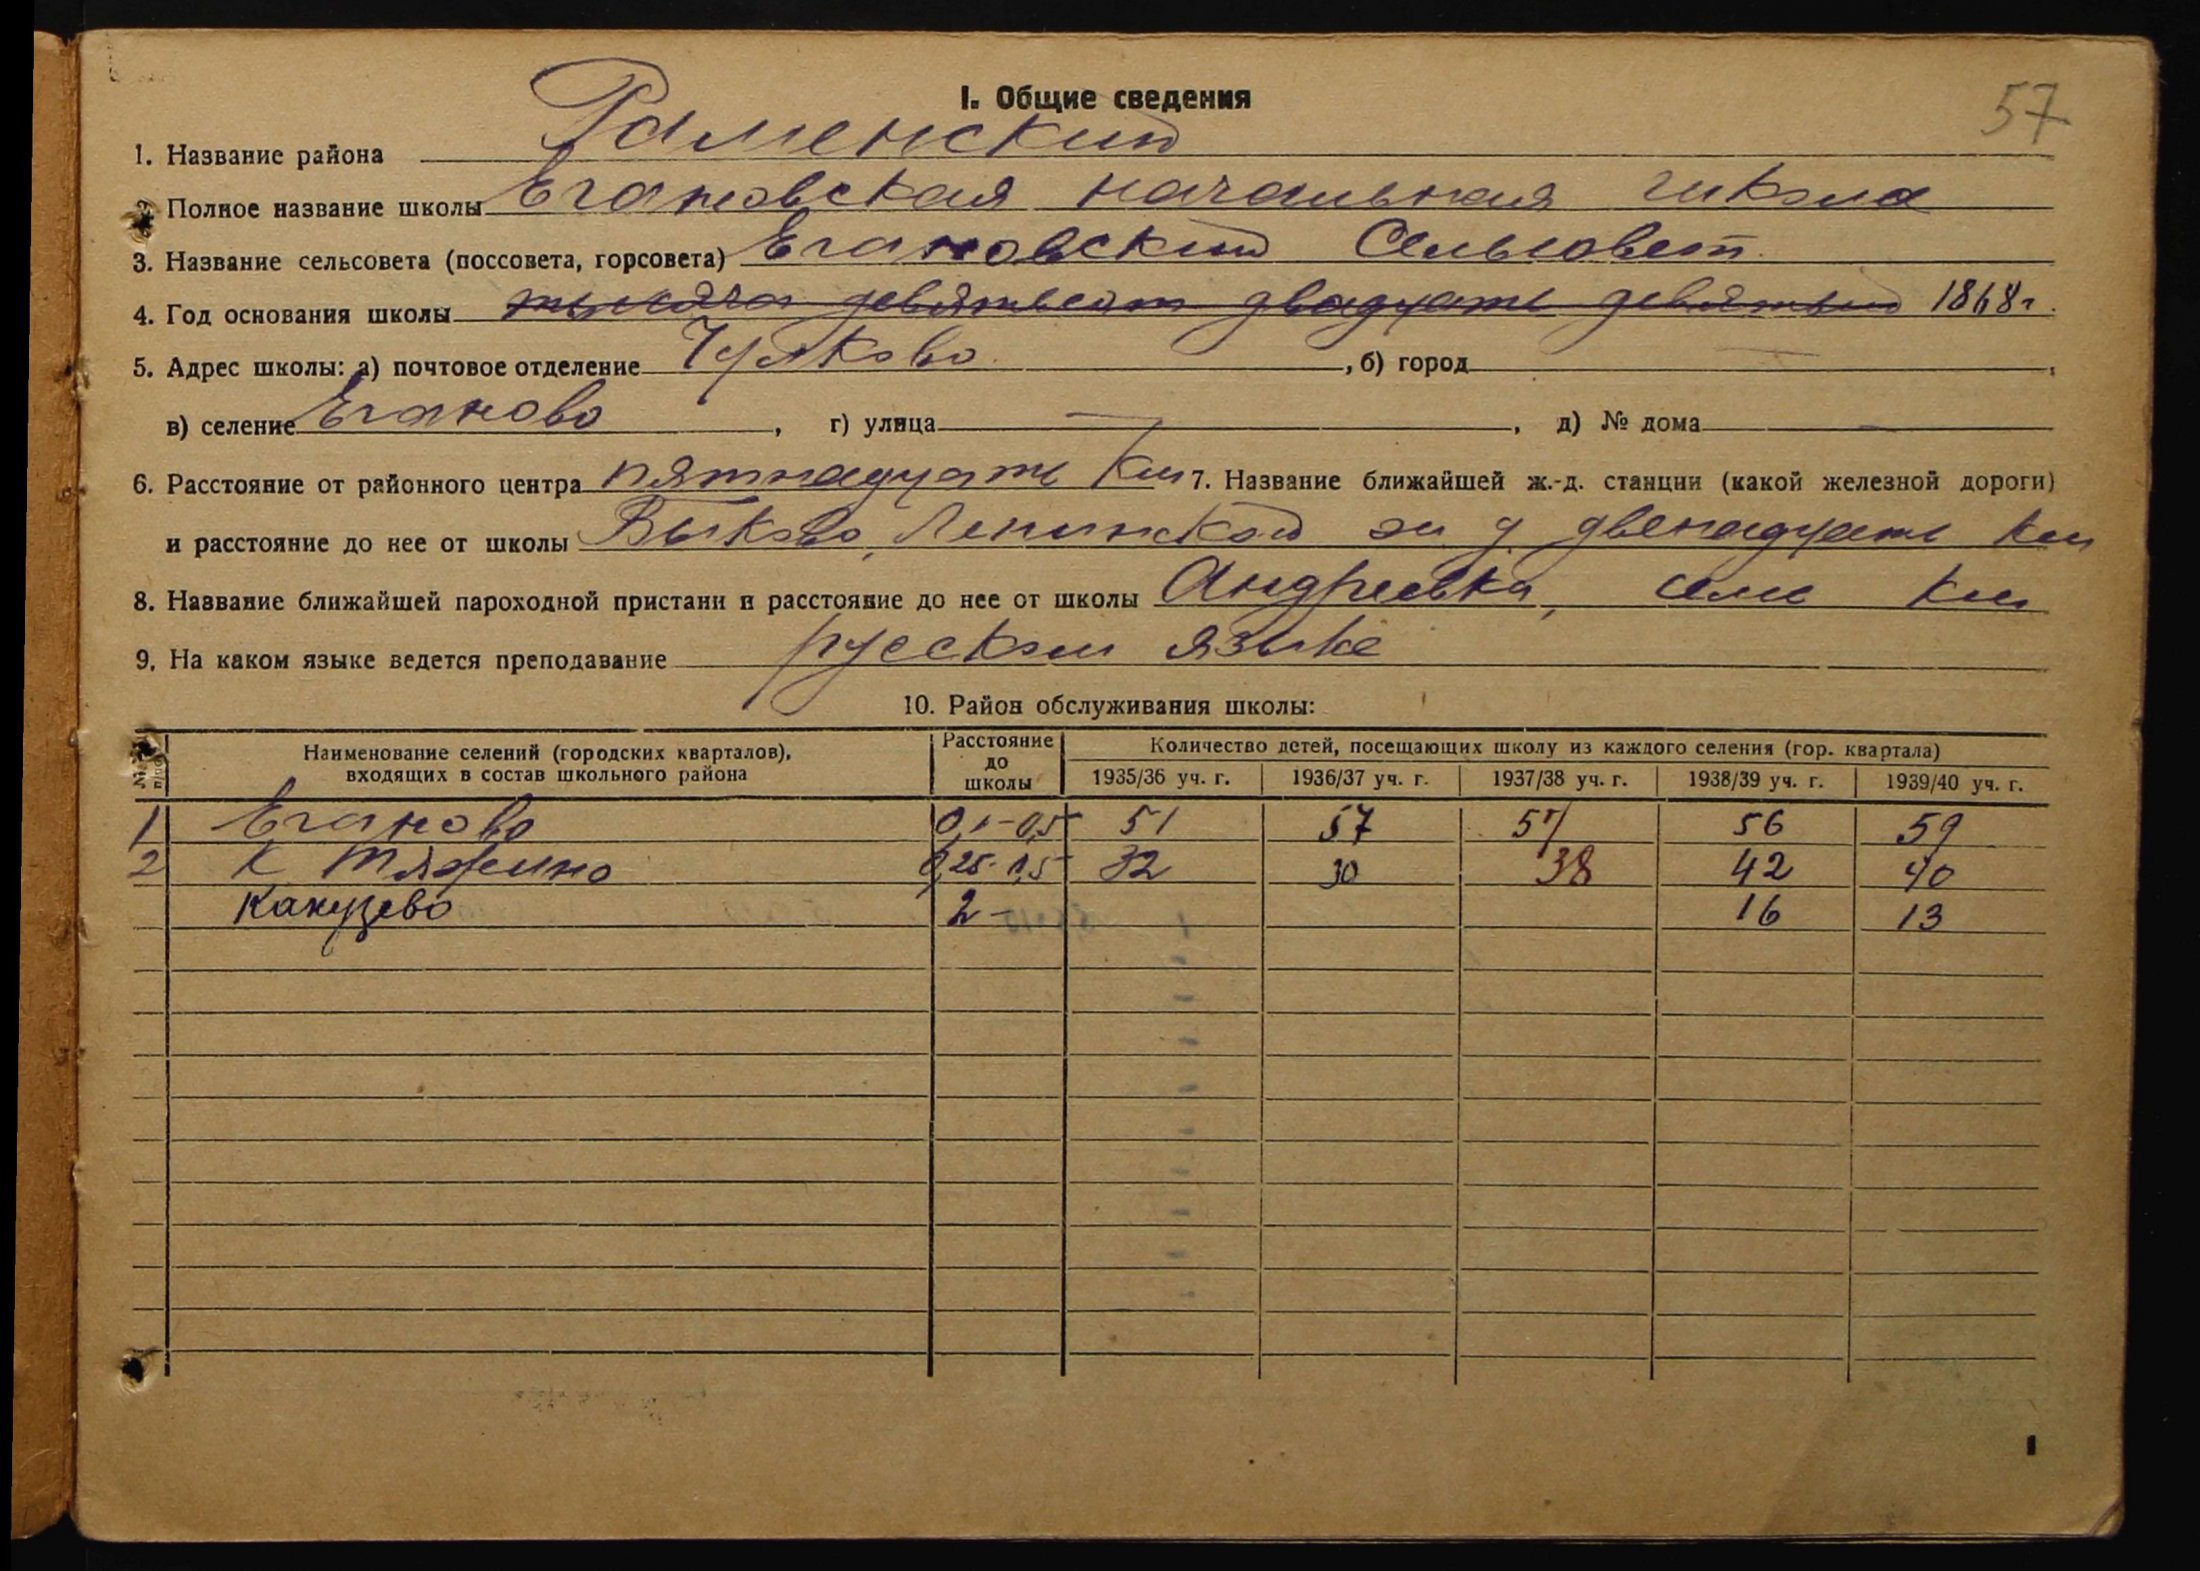 57
I. Общие сведения
1. Название района Раменский
2. Полное название школы Егановская начальная школа
3. Название сельсовета (поссовета, горсовета) Егановский Сельсовет
4. Год основания школы тысяча девятьсот двадцать девятый 1868 г.
5. Адрес школы: а) почтовое отделение Чулково, б) город —,
в) селение Еганово, г) улица —, д) № дома —
6. Расстояние от районного центра пятнадцать км 7. Название ближайшей ж.-д. станции (какой железной дороги)
и расстояние до нее от школы Быково, Ленинской ж д двенадцать км
8. Название ближайшей пароходной пристани и расстояние до нее от школы Андреевка, семь км
9. На каком языке ведется преподавание русском языке
10. Район обслуживания школы:
№№ п/пор. Наименование селений (городских кварталов), входящих в состав школьного района Расстояние до школы Количество детей, посещающих школу из каждого селения (гор. квартала)
1935/36 уч. г. 1936/37 уч. г. 1937/38 уч. г. 1938/39 уч. г. 1939/40 уч. г.
1 Еганово 0,1-0,5 51 57 57 56 59
2 К Тяжино 0,25-1,5 32 30 38 42 40
Какузево 2- 16 13
1